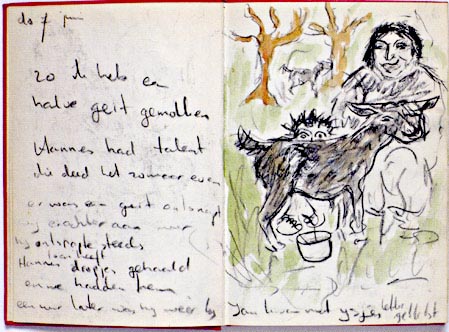 do 7 juni
zo ik heb een
halve geit gemolken
Hannes had talent
die deed het zomaar even
er was een geit ontsnapt
hij erachter aan maar
hij ontsnapte steeds
Hannes dropjes gehaald
en we hadden hem
een uur later was hij weer los
Jan Hannes met